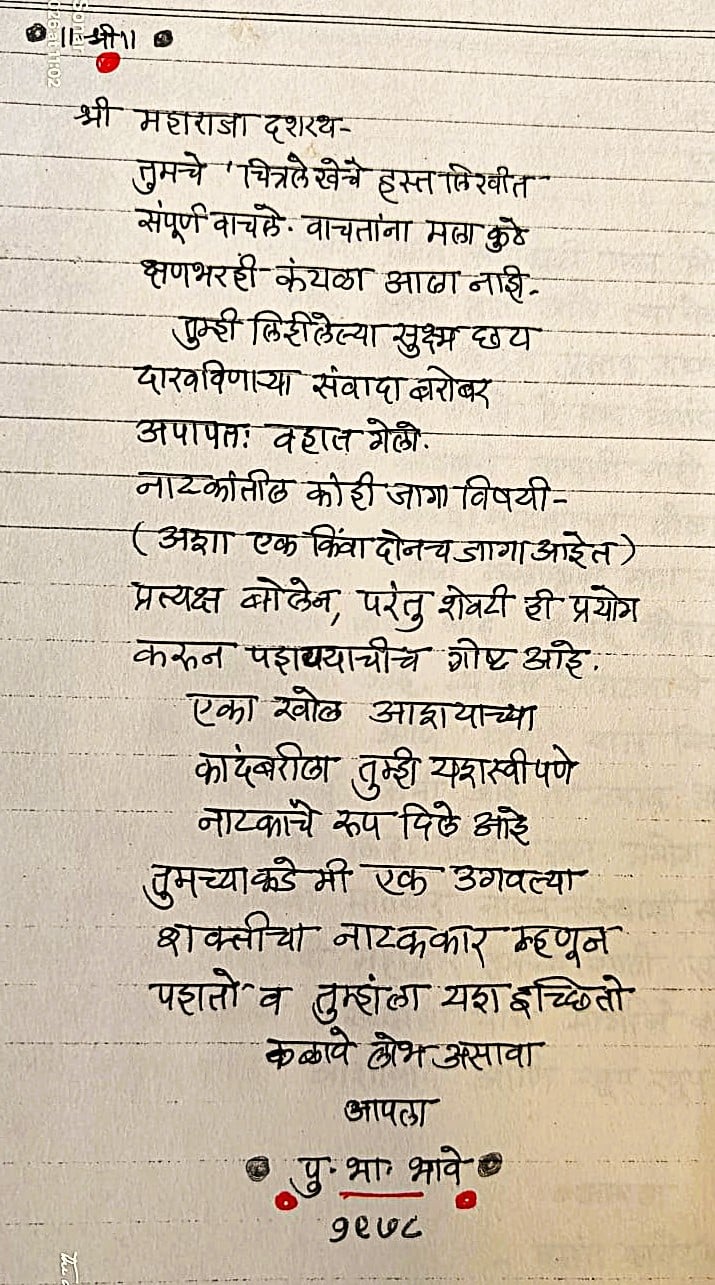 ॥ श्री ॥
श्री महाराजा दशरथ-
तुमचे 'चित्रलेखेचे हस्त लिखीत
संपूर्ण वाचले. वाचतांना मला कुठे
क्षणभरही कंटाळा आला नाही-
तुम्ही लिहीलेल्या सुक्ष्म छटा
दाखविणाऱ्या संवादा बरोबर
अपापतः वहात गेलो.
नाटकांतील कांही जागा विषयी-
(अशा एक किंवा दोनच जागा आहेत)
प्रत्यक्ष बोलेन, परंतु शेवटी ही प्रयोग
करून पहावयाचीच गोष्ट आहे.
एका खोल आशयाच्या
कादंबरीला तुम्ही यशस्वीपणे
नाटकाचे रूप दिले आहे
तुमच्याकडे मी एक उगवत्या
शक्तीचा नाटककार म्हणून
पहातो व तुम्हांला यश इच्छितो
कळावे लोभ असावा
आपला
पु. भा. भावे
१९७८